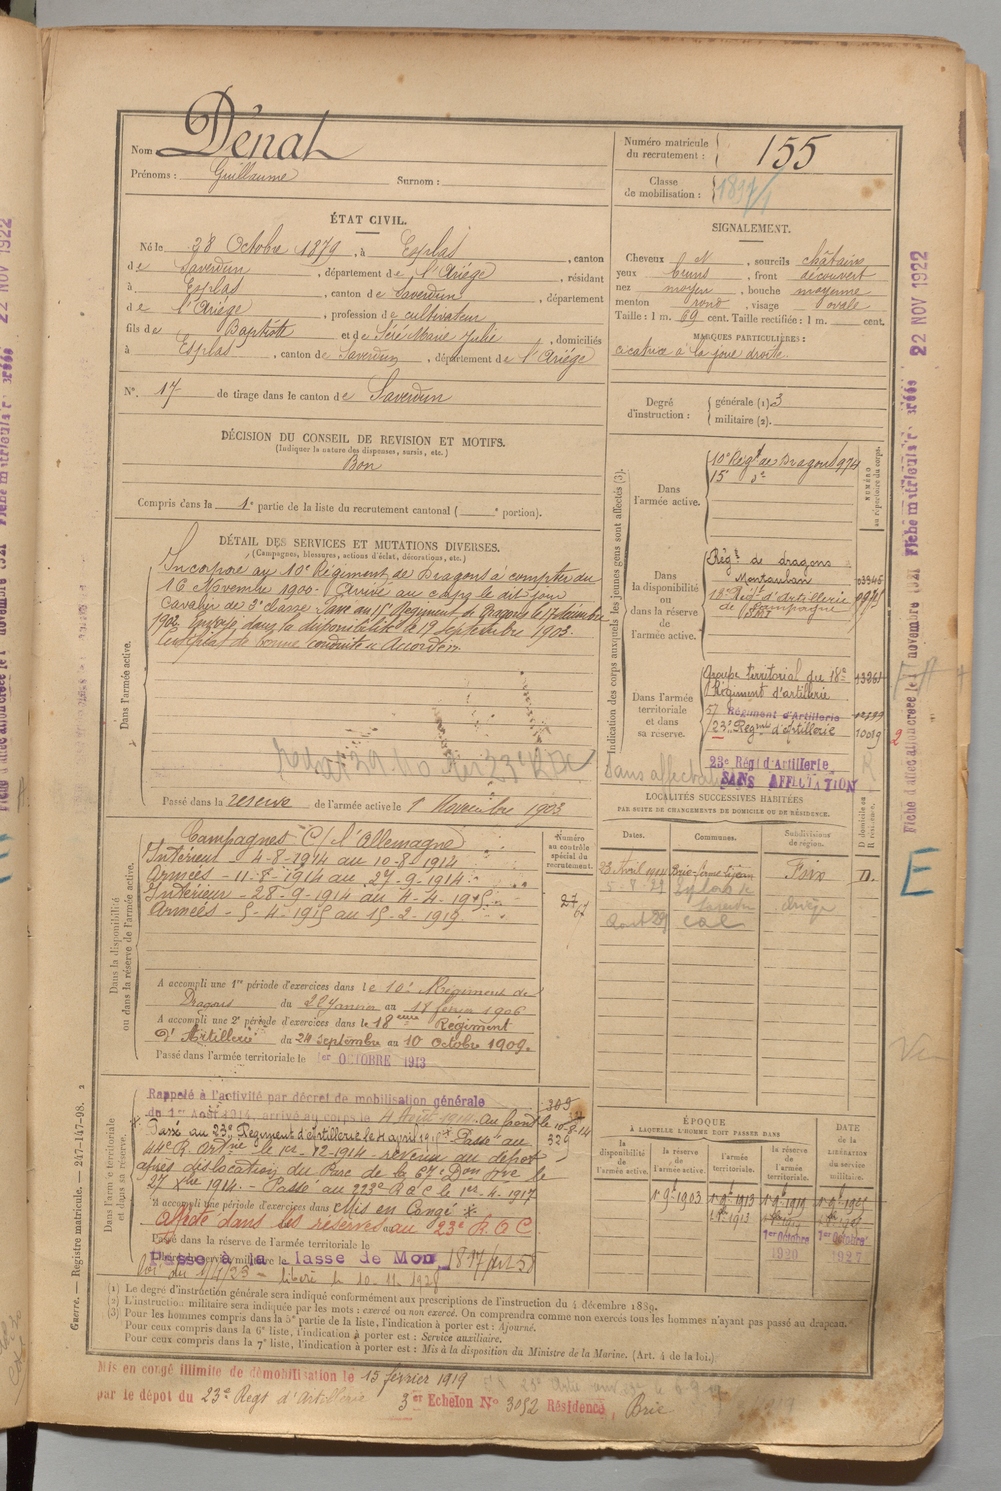 Nom : Dénat
Prénoms : Guillaume Surnom :
Numéro matricule du recrutement : 155
Classe de mobilisation :
ÉTAT CIVIL.
Né le 28 Octobre 1879, à Esplas, canton
de Saverdun, département de l'Ariége, résidant
à Esplas, canton de Saverdun, département
de l'Ariége, profession de cultivateur
fils de Baptiste et de Séré Marie Julie, domiciliés
à Esplas, canton de Saverdun, département de l'Ariége
N° 17 de tirage dans le canton de Saverdun
SIGNALEMENT.
Cheveux N, sourcils châtains
yeux bruns, front découvert
nez moyen, bouche moyenne
menton rond, visage ovale
Taille : 1 m. 69 cent. Taille rectifiée : 1 m. cent.
MARQUES PARTICULIÈRES :
cicatrice à la joue droite.
Degré d'instruction : générale (1) 3
militaire (2).
DÉCISION DU CONSEIL DE REVISION ET MOTIFS.
(Indiquer la nature des dispenses, sursis, etc.)
Bon
Compris dans la 1e partie de la liste du recrutement cantonal ( e portion).
DÉTAIL DES SERVICES ET MUTATIONS DIVERSES.
(Campagnes, blessures, actions d'éclat, décorations, etc.)
Dans l'armée active.
Incorporé au 10e Régiment de Dragons à compter du
16 Novembre 1900. Arrivé au corps le dit jour
Cavalier de 2e classe. Passé au 15e Régiment de Dragons le 17 décembre
1902. Envoyé dans la disponibilité le 19 septembre 1903.
Certificat de bonne conduite « Accordé »
Passé dans la réserve de l'armée active le 1 Novembre 1903
Indication des corps auxquels les jeunes gens sont affectés (3).
NUMÉRO au répertoire du corps.
Dans l'armée active.
10e Régt de Dragons 974
15e de
Dans la disponibilité ou dans la réserve de l'armée active.
Régt de dragons
Montauban
18e Régt d'Artillerie
de Campagne
Dans l'armée territoriale et dans sa réserve.
Groupe territorial du 18e 13261
Régiment d'artillerie
57 Régiment d'Artillerie
23e Regmt d'Artillerie 10019
23e Régt d'Artillerie
SANS AFFECTATION
LOCALITÉS SUCCESSIVES HABITÉES
PAR SUITE DE CHANGEMENTS DE DOMICILE OU DE RÉSIDENCE.
Dates. Communes. Subdivisions de région. D domicile ou R résidence.
Foix D.
Dans la disponibilité ou dans la réserve de l'armée active.
Numéro au contrôle spécial du recrutement.
Campagnes C/ l'Allemagne
Intérieur - 4-8-1914 au 10-8-1914
Armées - 11-8-1914 au 27-9-1914
Intérieur - 28-9-1914 au 4-4-1915
Armées - 5-4-1915 au 15-2-1919
A accompli une 1re période d'exercices dans le 10e Régiment de
Dragons du 22 Janvier au 18 février 1906
A accompli une 2e période d'exercices dans le 18ème Régiment
d'Artillerie du 24 septembre au 10 octobre 1909.
Passé dans l'armée territoriale le 1er OCTOBRE 1913
Dans l'armée territoriale et dans sa réserve.
Rappelé à l'activité par décret de mobilisation générale 309
du 1er Août 1914, arrivé au corps le 4 Août 1914. au front le 10-8-14
Passé au 23e Régiment d'artillerie le 4 avril 1915 * Passé au 329
44e R. Artrie le 1er-12-1914 - revenu au dépôt
après dislocation du Parc de la 67e Don Rve le
27 Xbre 1914. - Passé au 223e R a C le 1er-4-1917
A accompli une période d'exercices dans Mis en Congé *
affecté dans les réserves au 23e R. A C
Passé dans la réserve de l'armée territoriale le
Passé à la classe de Mob
du 1/4/23 - libéré le 10.11.1928
ÉPOQUE
À LAQUELLE L'HOMME DOIT PASSER DANS
DATE de la LIBÉRATION du service militaire.
la disponibilité de l'armée active. la réserve de l'armée active. l'armée territoriale. la réserve de l'armée territoriale.
1er Octobre 1920
1er Octobre 1927
(1) Le degré d'instruction générale sera indiqué conformément aux prescriptions de l'instruction du 4 décembre 1889.
(2) L'instruction militaire sera indiquée par les mots : exercé ou non exercé. On comprendra comme non exercés tous les hommes n'ayant pas passé au drapeau.
(3) Pour les hommes compris dans la 5e partie de la liste, l'indication à porter est : Ajourné.
Pour ceux compris dans la 6e liste, l'indication à porter est : Service auxiliaire.
Pour ceux compris dans la 7e liste, l'indication à porter est : Mis à la disposition du Ministre de la Marine. (Art. 4 de la loi.)
Mis en congé illimité de démobilisation le 15 février 1919
par le dépôt du 23e Regt d'Artillerie 3er Echelon N° 3052 Résidence, Brie
Guerre. — Registre matricule. — 247-147-98. 2
22 NOV 1922
22 NOV 1922
E